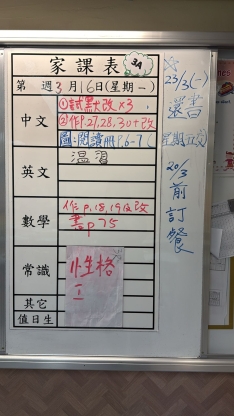 家課表 3A
第 週 3月16日(星期一)
中文
①試默改×3
②作P.27,28,30+改
圖:閱讀冊P.6-7(星期五交)
英文
溫習
數學
作p.18,19及改
書p75
常識
性格
工
其它
值日生
23/3(一)
還書
20/3前訂餐